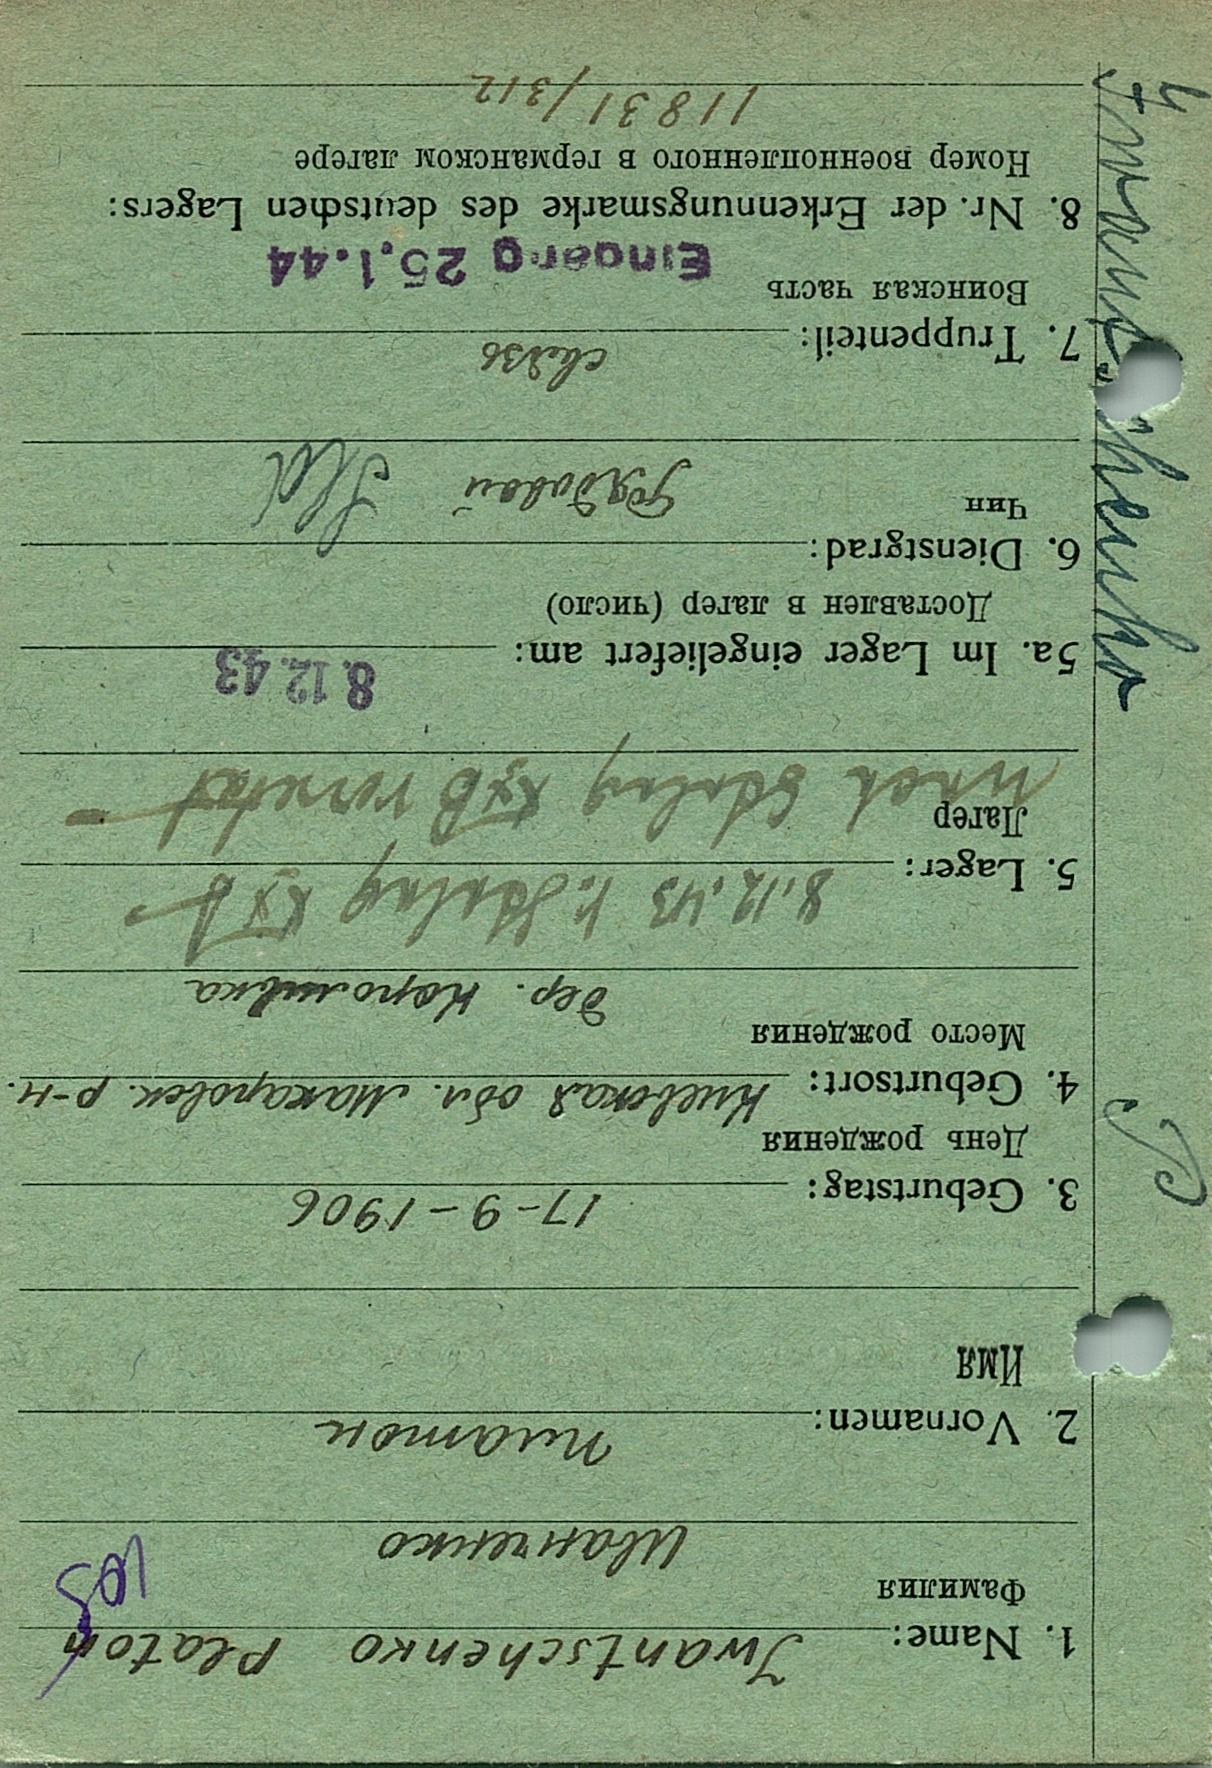 1. Name: Jwantschenko Platon
Фамилия
Иванченко
2. Vornamen: Платон
Имя
3. Geburtstag: 17-9-1906
День рождения
4. Geburtsort: Киевская обл. Макаровск. р-н.
Место рождения
дер.
5. Lager: 8.12.43 v. Stalag XXB
Лагер
nach Stalag XXB versetzt
5a. Im Lager eingeliefert am: 8.12.43
Доставлен в лагер (число)
6. Dienstgrad: Рядовой
Чин
7. Truppenteil: связь
Воинская часть
Eingang 25.1.44
8. Nr. der Erkennungsmarke des deutschen Lagers:
Номер военнопленного в германском лагере
11831/312